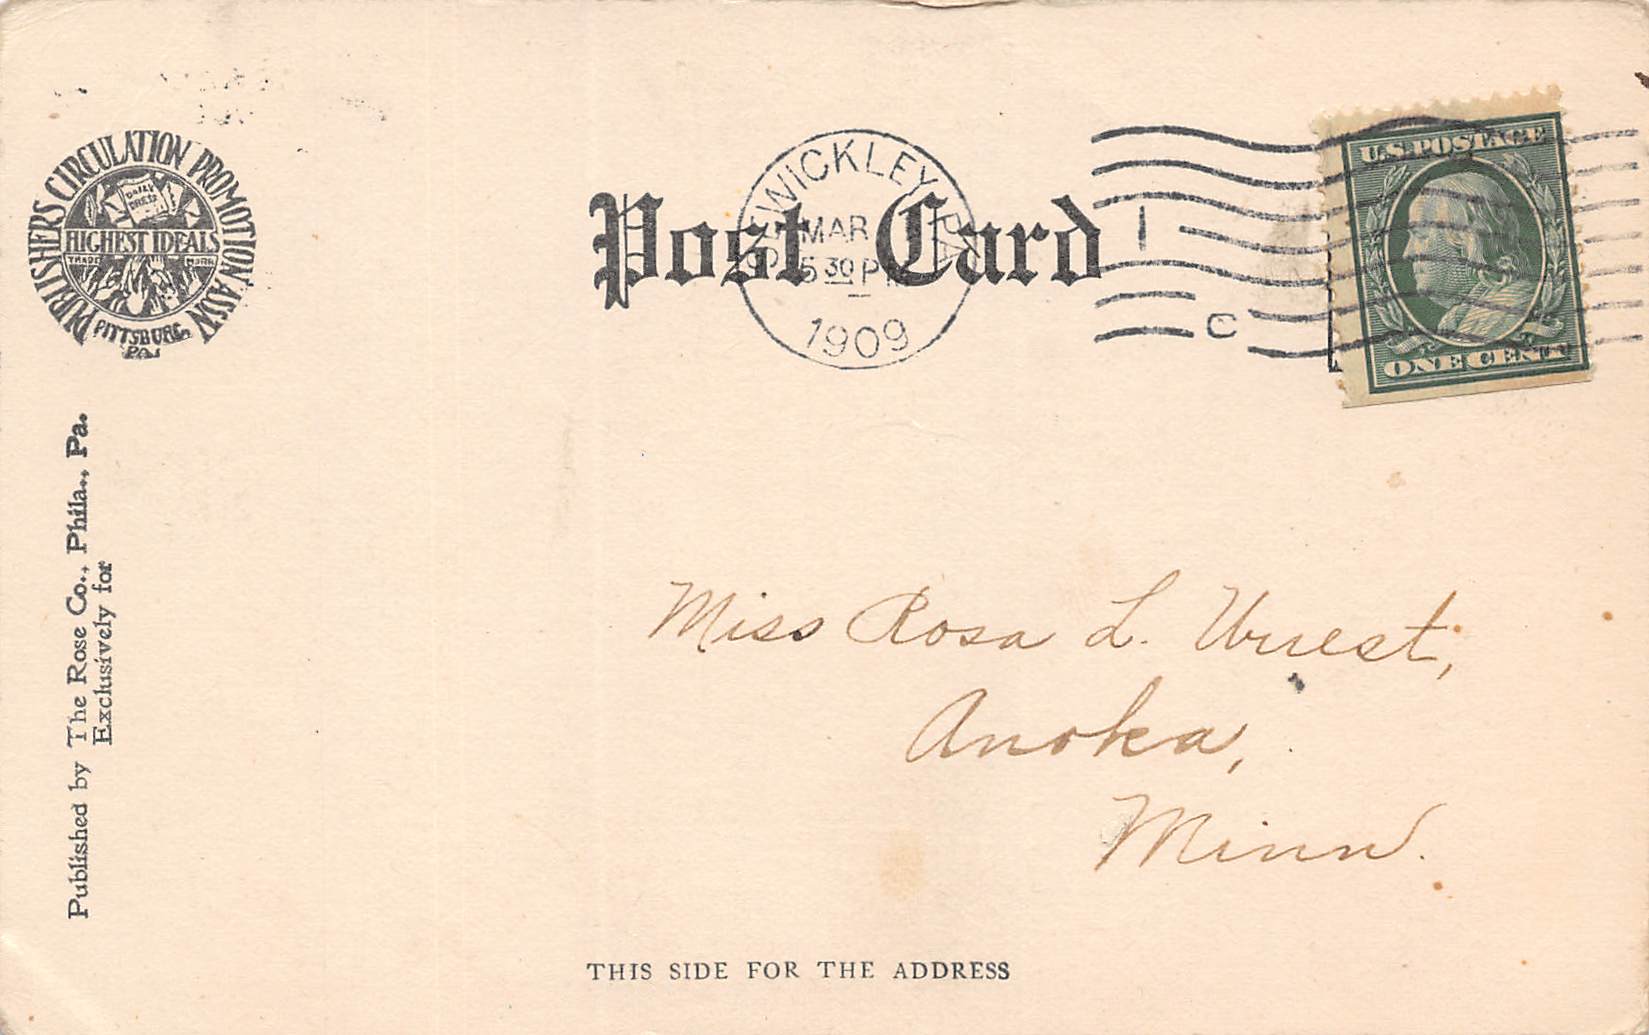 PUBLISHERS CIRCULATION PROMOTION ASS'N
DAILY PRESS
HIGHEST IDEALS
TRADE MARK
PITTSBURG,
PA.
Published by The Rose Co., Phila., Pa.
Exclusively for
Post Card
SEWICKLEY, PA.
MAR
5 30 P
1909
1
C
U.S. POSTAGE
ONE CENT
Miss Rosa L.
Anoka,
Minn.
THIS SIDE FOR THE ADDRESS